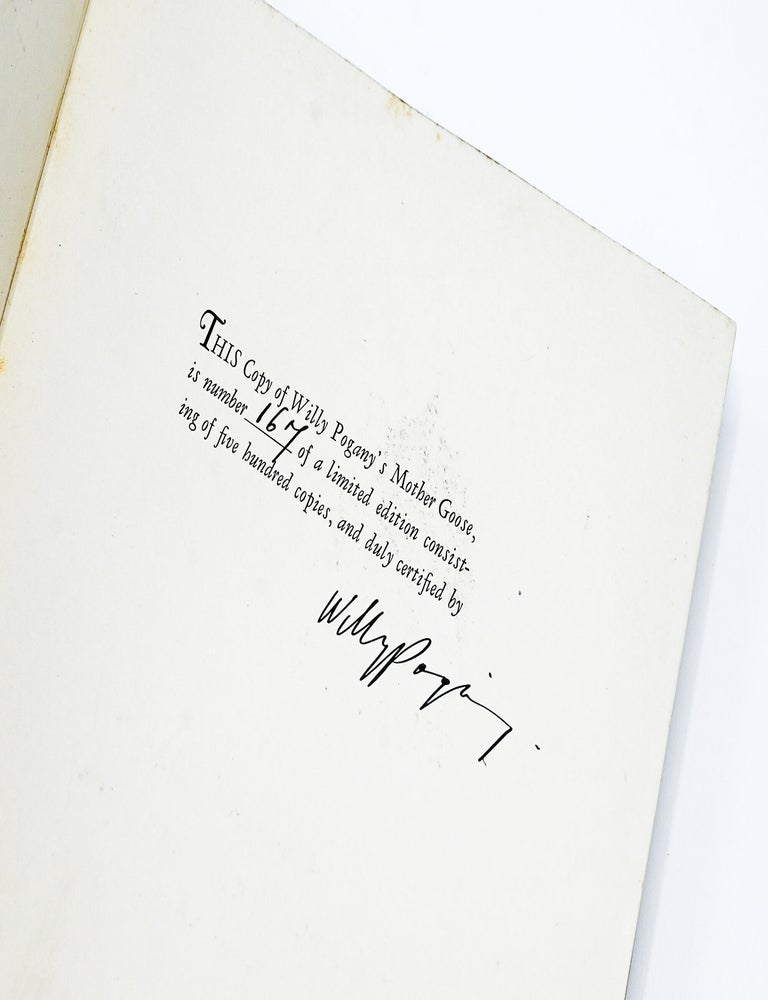 THIS Copy of Willy Pogany's Mother Goose,
is number 167 of a limited edition consist-
ing of five hundred copies, and duly certified by
Willy Pogány.